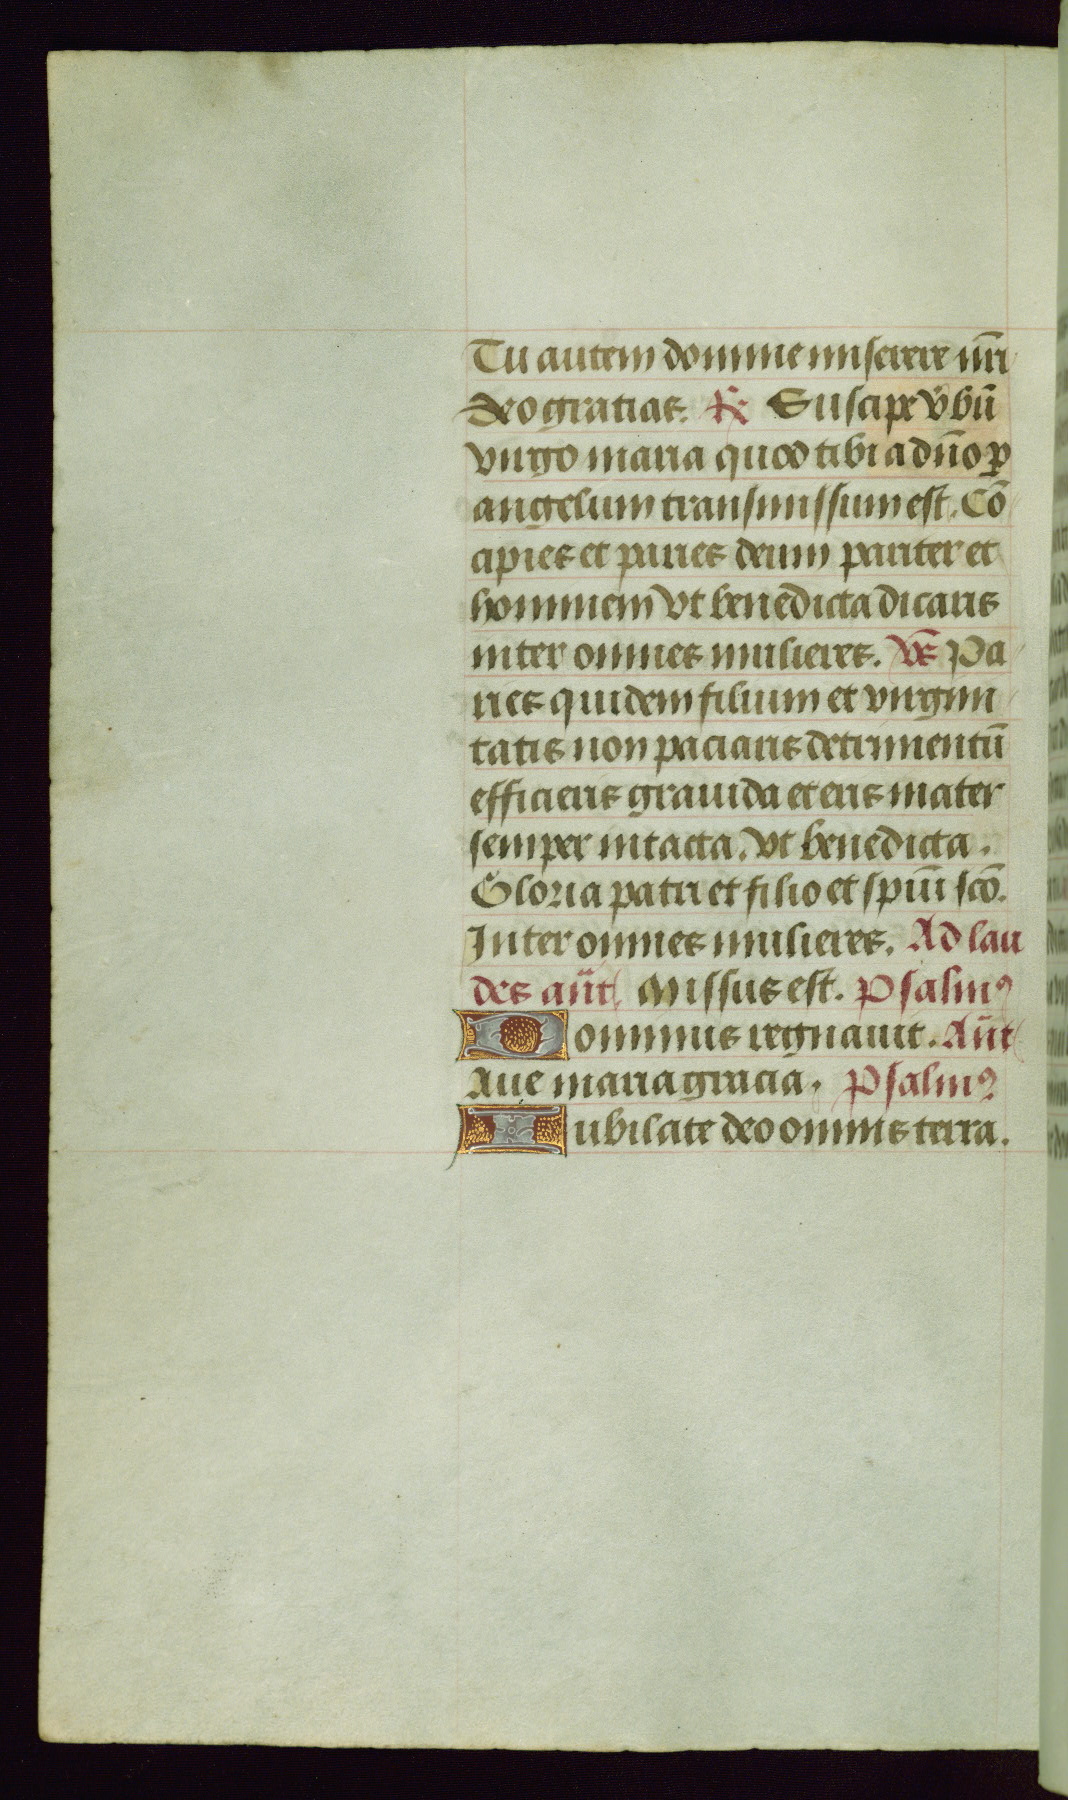 Tu autem domine miserere nr̄i
Deo gratias. ℟ Suscipe v̄bū
virgo maria quod tibi a dn̄o ꝑ
angelum transmissum est. Cō
cipies et paries deum pariter et
hominem vt benedicta dicaris
inter omnes mulieres. v̄s Pa
ries quidem filium et virgini
tatis non paciaris detrimentū
efficieris grauida et eris mater
semper intacta. vt benedicta.
Gloria patri et filio et spūi scō.
Inter omnes mulieres. Ad lau
des an̄t Missus est. Psalmꝰ
Dominus regnauit. An̄t
Aue maria gracia. Psalmꝰ
Iubilate deo omnis terra.